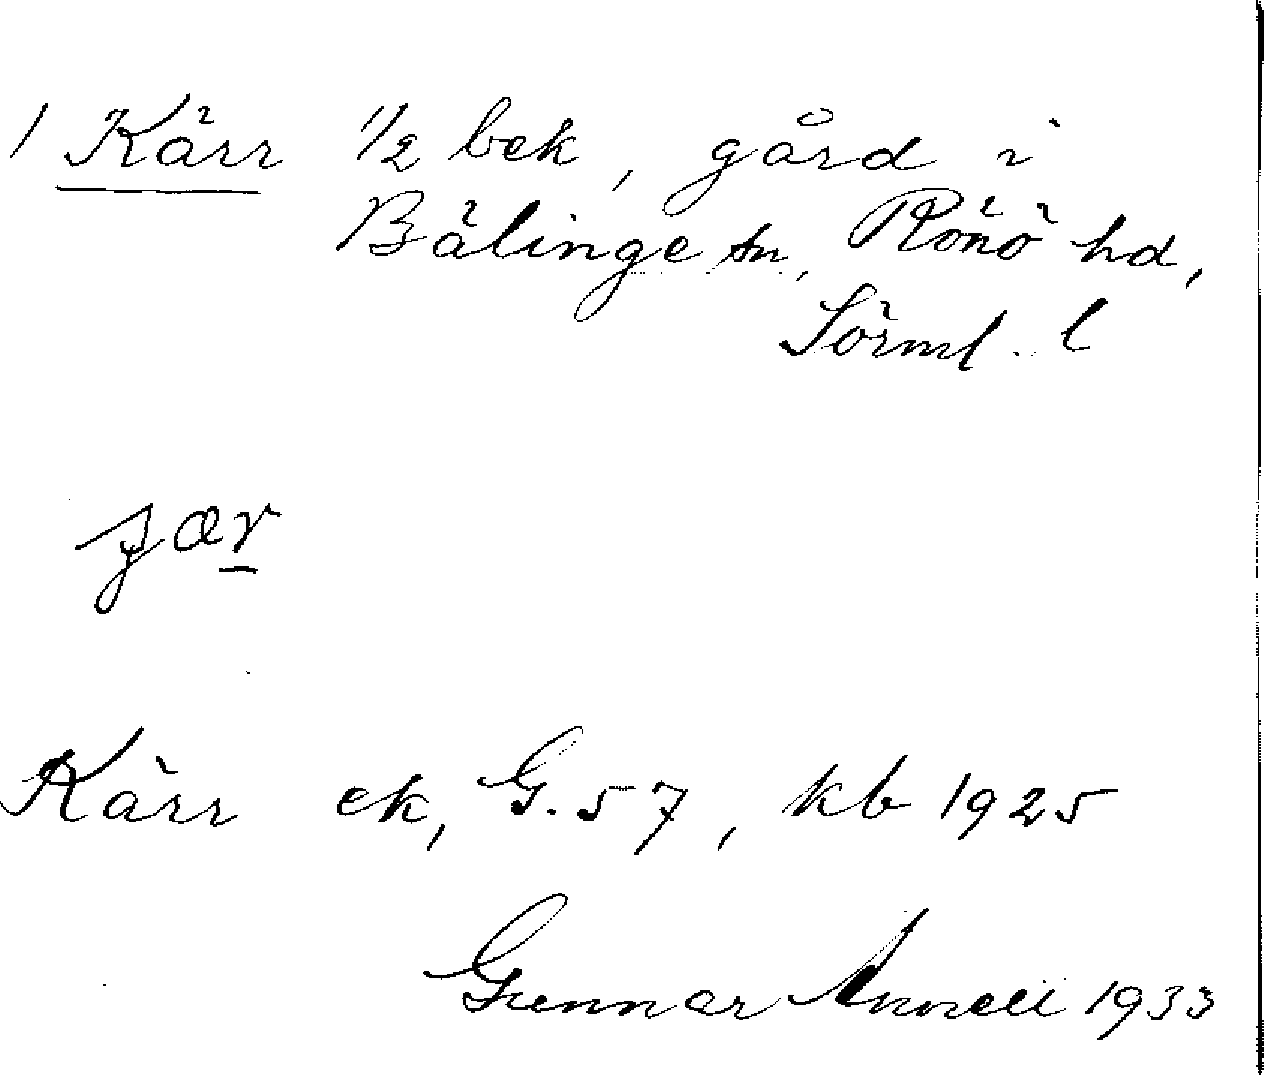 1 Kärr 1/2 bek, gård i
Bälinge sn, Rönö hd,
Sörml. l
Kärr ek, G. 57, kb 1925
Gunnar 1933